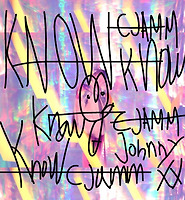 KNOW CJAMM
KNOW
KNOW CJAMM
Johnny
KNOW CJAMM XX